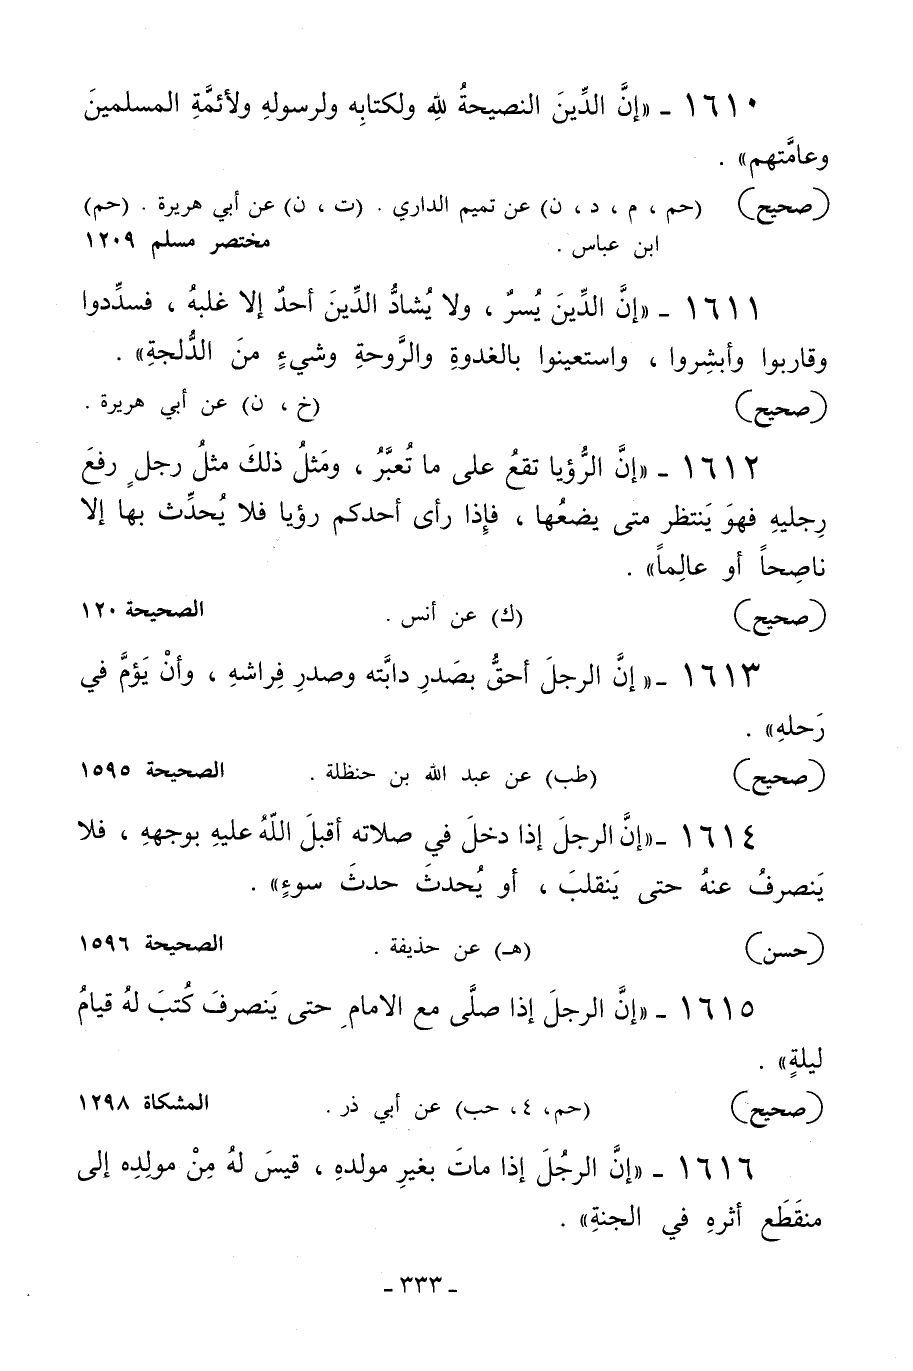 ١٦١٠ ـ «إنَّ الدِّينَ النصيحةُ للهِ ولكتابِه ولرسولهِ ولأئمَّةِ المسلمينَ
وعامَّتهم» .
(صحيح) (حم ، م ، د ، ن) عن تميم الداري . (ت ، ن) عن أبي هريرة . (حم)
ابن عباس . مختصر مسلم ١٢٠٩
١٦١١ ـ «إنَّ الدِّينَ يُسرٌ ، ولا يُشادُّ الدِّينَ أحدٌ إلا غلبهُ ، فسدِّدوا
وقاربوا وأبشِروا ، واستعينوا بالغدوةِ والرَّوحةِ وشيءٍ منَ الدُّلجةِ» .
(صحيح) (خ ، ن) عن أبي هريرة .
١٦١٢ ـ «إنَّ الرُّؤيا تقعُ على ما تُعبَّرُ ، ومَثلُ ذلكَ مثلُ رجلٍ رفعَ
رِجليهِ فهوَ يَنتظر متى يضعُها ، فإذا رأى أحدكم رؤيا فلا يُحدِّث بها إلا
ناصِحاً أو عالِماً» .
(صحيح) (ك) عن أنس . الصحيحة ١٢٠
١٦١٣ ـ « إنَّ الرجلَ أحقُّ بصَدرِ دابَّته وصدرِ فِراشهِ ، وأنْ يَؤمَّ في
رَحلهِ» .
(صحيح) (طب) عن عبد الله بن حنظلة . الصحيحة ١٥٩٥
١٦١٤ ـ«إنَّ الرجلَ إذا دخلَ في صلاته أقبلَ اللّهُ عليهِ بوجههِ ، فلا
يَنصرفُ عنهُ حتى يَنقلبَ ، أو يُحدثَ حدثَ سوءٍ» .
(حسن) (هـ) عن حذيفة . الصحيحة ١٥٩٦
١٦١٥ ـ «إنَّ الرجلَ إذا صلَّى مع الامامِ حتى يَنصرفَ كُتبَ لهُ قيامُ
ليلةٍ» .
(صحيح) (حم، ٤، حب) عن أبي ذر . المشكاة ١٢٩٨
١٦١٦ ـ «إنَّ الرجُلَ إذا ماتَ بغيرِ مولدهِ ، قيسَ لهُ مِنْ مولِدِه إلى
منقَطَع أثرهِ في الجنةِ» .
ـ ٣٣٣ ـ